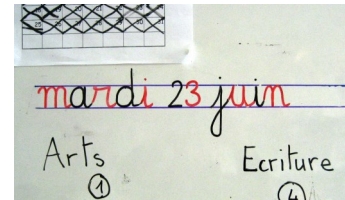 mardi 23 juin
Arts Ecriture
1 4